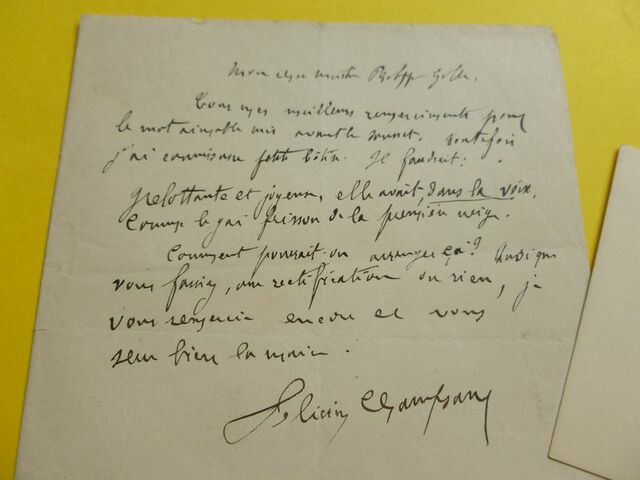 Mon cher maître Philippe Gille,
Tous mes meilleurs remerciements pour
le mot aimable mis avant le sonnet. Toutefois
j'ai commis une petite bêtise. Il faudrait :
grelottante et joyeuse, elle avait dans la voix
Comme le gai frisson de la première neige.
Comment pourrait-on arranger ça ? Quoi que
vous fassiez, une rectification ou rien, je
vous remercie encore et vous
serre bien la main.
Félicien Champsaur